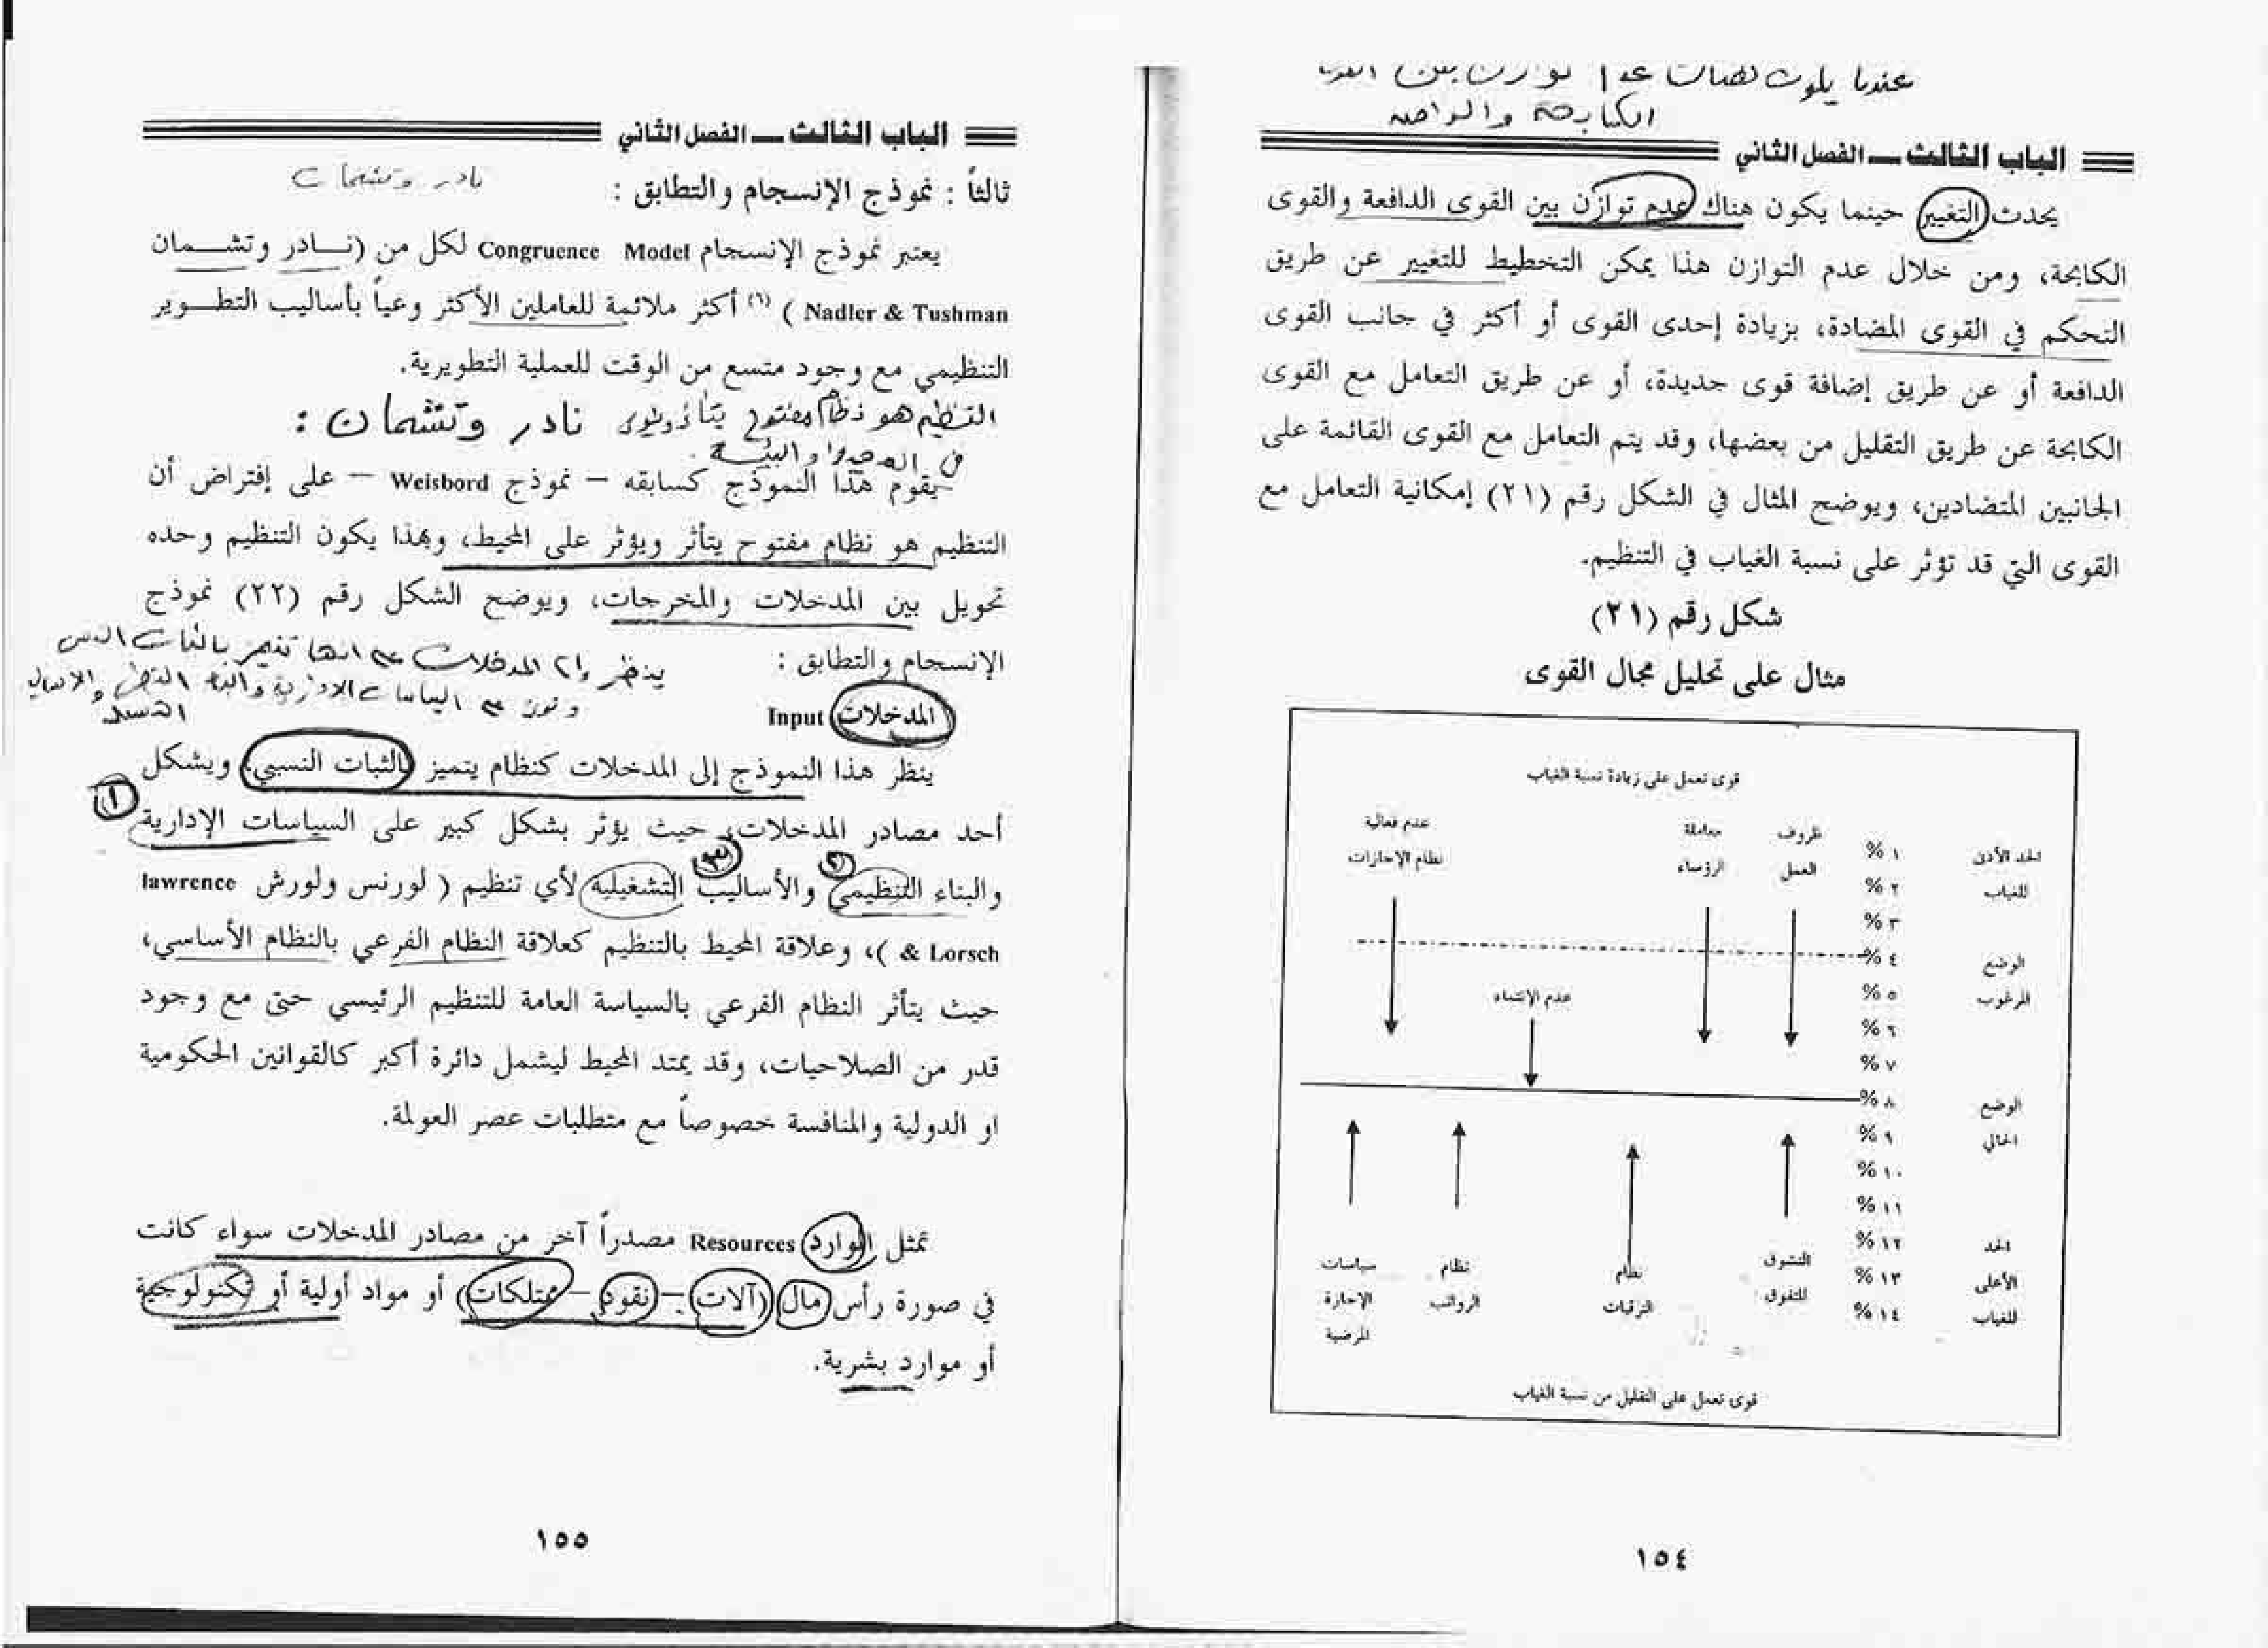 عندما يكون هناك عدم توازن بين القوى
الكابحة والدافعة
الباب الثالث — الفصل الثاني
يحدث التغيير حينما يكون هناك عدم توازن بين القوى الدافعة والقوى
الكابحة، ومن خلال عدم التوازن هذا يمكن التخطيط للتغيير عن طريق
التحكم في القوى المضادة، بزيادة إحدى القوى أو أكثر في جانب القوى
الدافعة أو عن طريق إضافة قوى جديدة، أو عن طريق التعامل مع القوى
الكابحة عن طريق التقليل من بعضها، وقد يتم التعامل مع القوى القائمة على
الجانبين المتضادين، ويوضح المثال في الشكل رقم (٢١) إمكانية التعامل مع
القوى التي قد تؤثر على نسبة الغياب في التنظيم.
شكل رقم (٢١)
مثال على تحليل مجال القوى
قوى تعمل على زيادة نسبة الغياب
ظروف معاملة عدم فعالية
العمل الرؤساء نظام الإجازات
الحد الأدنى ١ %
للغياب ٢ %
٣ %
الوضع ٤ %
المرغوب ٥ % عدم الإنتماء
٦ %
٧ %
الوضع ٨ %
الحالي ٩ %
١٠ %
١١ %
الحد ١٢ % التشوق نظام نظام سياسات
الأعلى ١٣ % للتفوق الترقيات الرواتب الإجازة
للغياب ١٤ % المرضية
قوى تعمل على التقليل من نسبة الغياب
١٥٤
الباب الثالث — الفصل الثاني
ثالثاً : نموذج الإنسجام والتطابق : نادر وتشمان
يعتبر نموذج الإنسجام Congruence Model لكل من (نـــادر وتشـــمان
Nadler & Tushman ) (٦) أكثر ملائمة للعاملين الأكثر وعياً بأساليب التطـــوير
التنظيمي مع وجود متسع من الوقت للعملية التطويرية.
نادر وتشمان :
التنظيم هو نظام مفتوح يتأثر ويؤثر
يقوم هذا النموذج كسابقه – نموذج Weisbord – على إفتراض أن
التنظيم هو نظام مفتوح يتأثر ويؤثر على المحيط، وبهذا يكون التنظيم وحده
تحويل بين المدخلات والمخرجات، ويوضح الشكل رقم (٢٢) نموذج
الإنسجام والتطابق :
ينظر إلى المدخلات على انها تتميز بالثبات النسبي
المدخلات Input
ينظر هذا النموذج إلى المدخلات كنظام يتميز بالثبات النسبي، ويشكل
أحد مصادر المدخلات، حيث يؤثر بشكل كبير على السياسات الإدارية ١
والبناء التنظيمي ٢ والأساليب ٣ التشغيلية لأي تنظيم ( لورنس ولورش lawrence
& Lorsch )، وعلاقة المحيط بالتنظيم كعلاقة النظام الفرعي بالنظام الأساسي،
حيث يتأثر النظام الفرعي بالسياسة العامة للتنظيم الرئيسي حتى مع وجود
قدر من الصلاحيات، وقد يمتد المحيط ليشمل دائرة أكبر كالقوانين الحكومية
او الدولية والمنافسة خصوصاً مع متطلبات عصر العولمة.
تمثل الموارد Resources مصدراً آخر من مصادر المدخلات سواء كانت
في صورة رأس مال (آلات – نقود – ممتلكات) أو مواد أولية أو تكنولوجية
أو موارد بشرية.
١٥٥